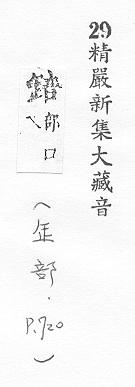 29精嚴新集大藏音
部口
（缶部．
P.720）